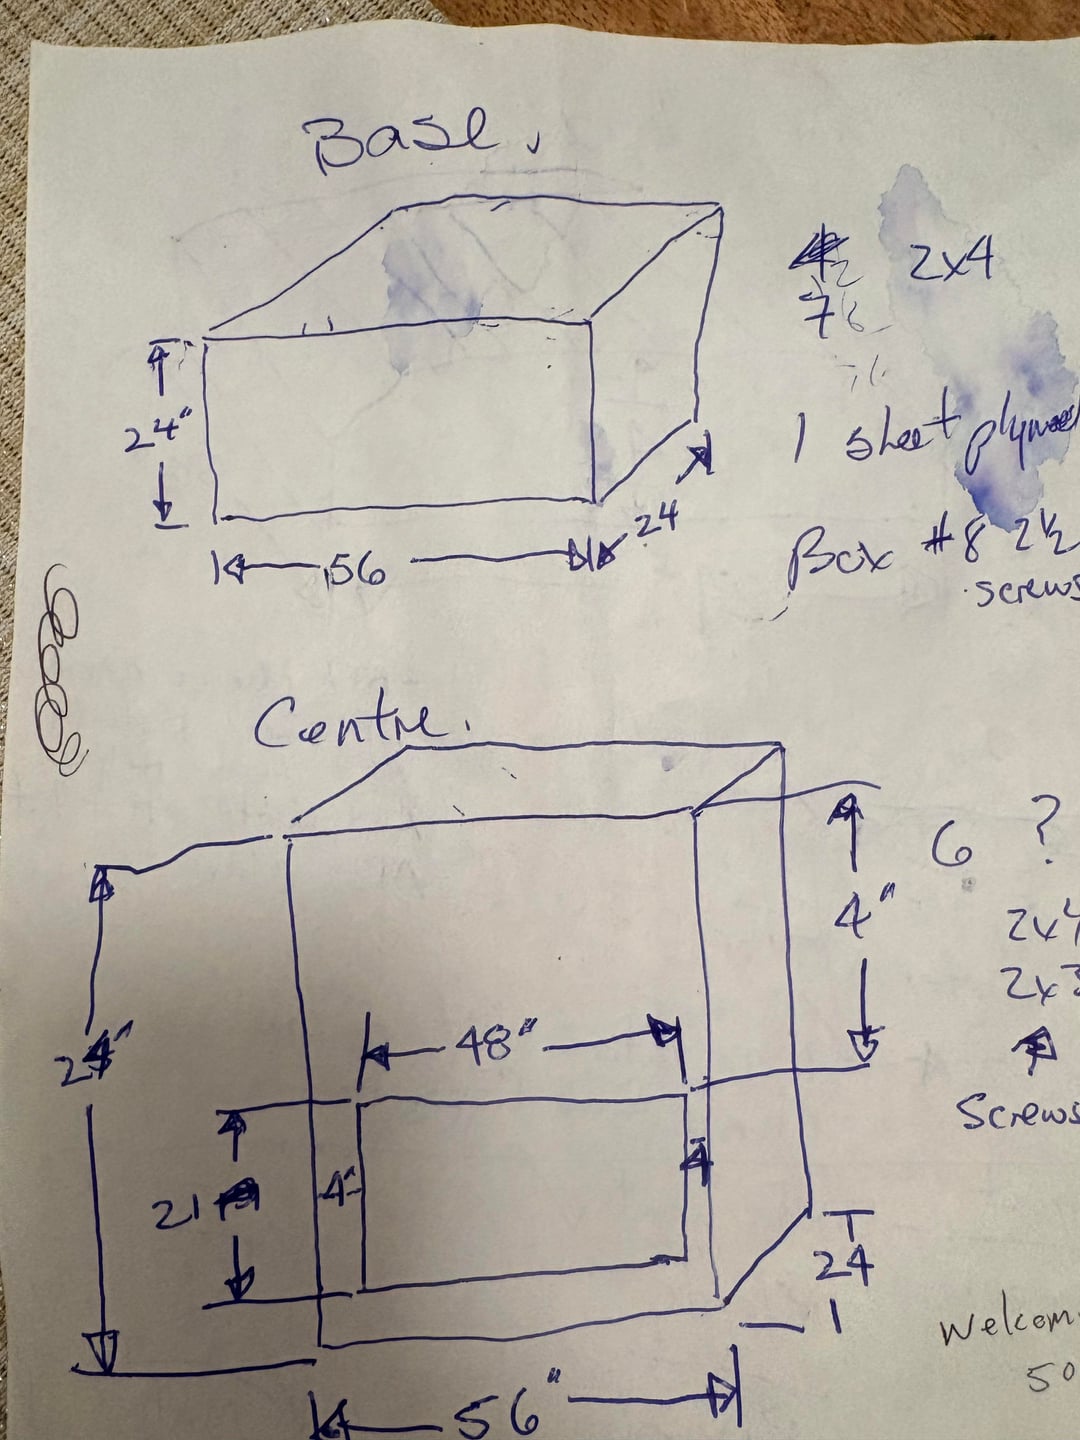 Base.
2x4
7
24"
1 sheet plywood
56
24
Box #8 2½
screws
Centre.
6 ?
4"
2x4
2x3
48"
24"
Screws
4"
4
21
24
56"